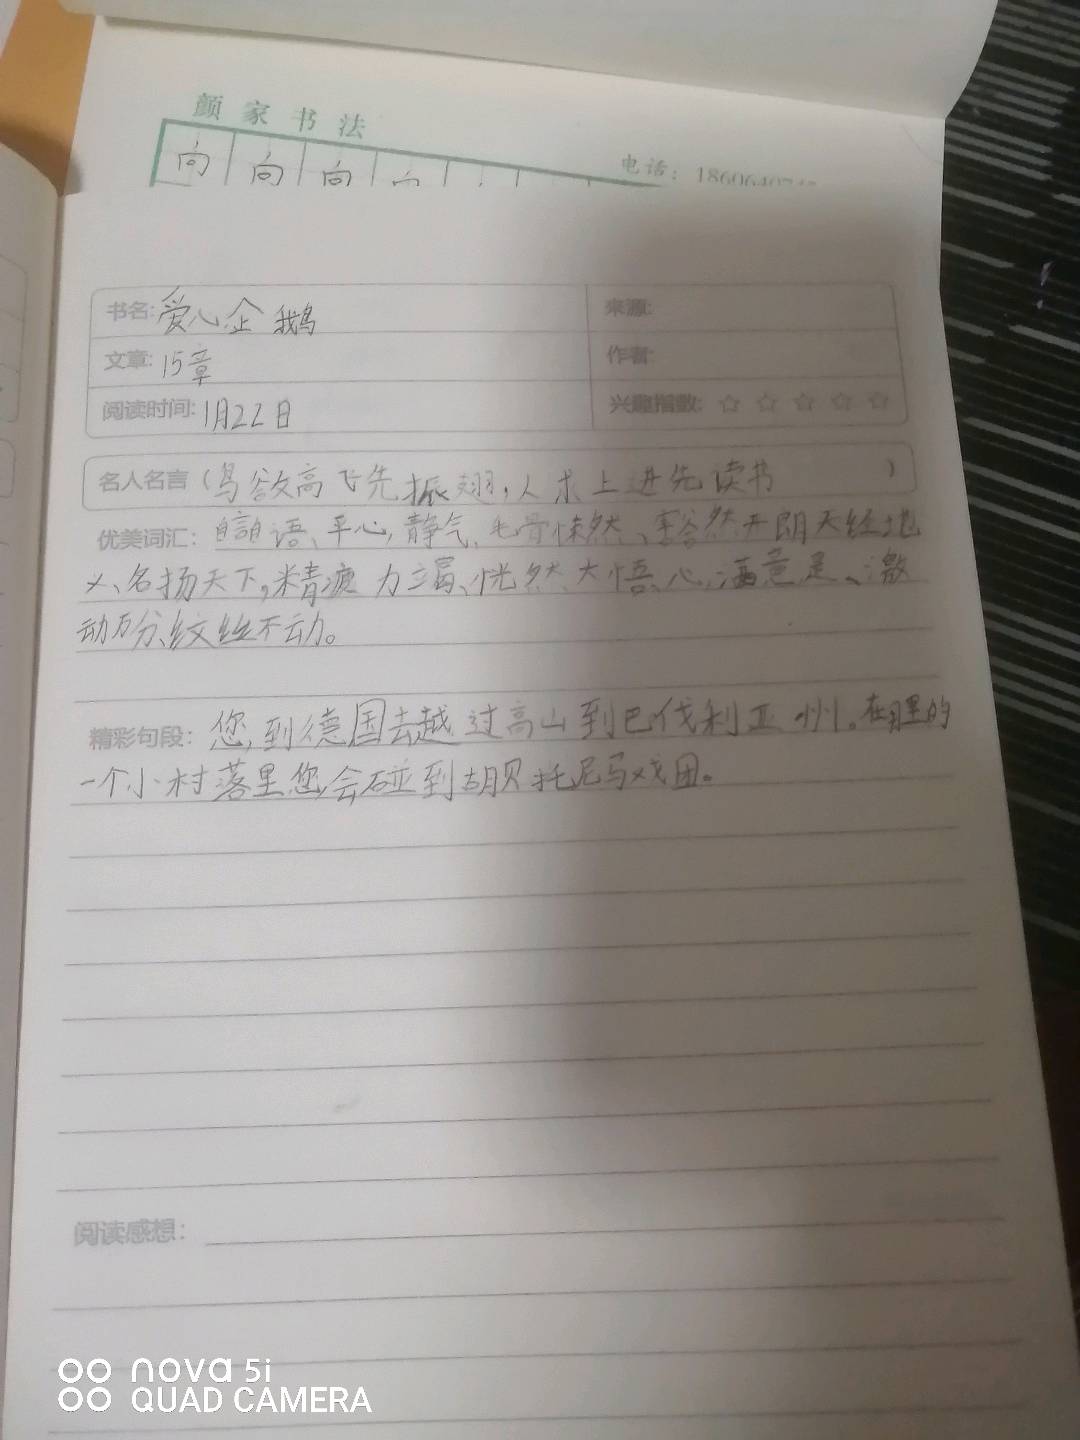 颜家书法
向 向 向
电话：
书名: 爱心企鹅
来源:
文章: 15章
作者:
阅读时间: 1月22日
兴趣指数: ☆ ☆ ☆ ☆ ☆
名人名言（鸟欲高飞先振翅,人求上进先读书）
优美词汇: 自言自语、平心静气、毛骨悚然、豁然开朗天经地
义、名扬天下,精疲力竭、恍然大悟、心满意足、激
动万分、纹丝不动。
精彩句段: 您到德国去越过高山到巴伐利亚州。在那里的
一个小村落里您会碰到胡贝托尼马戏团。
阅读感想:
nova 5i
QUAD CAMERA